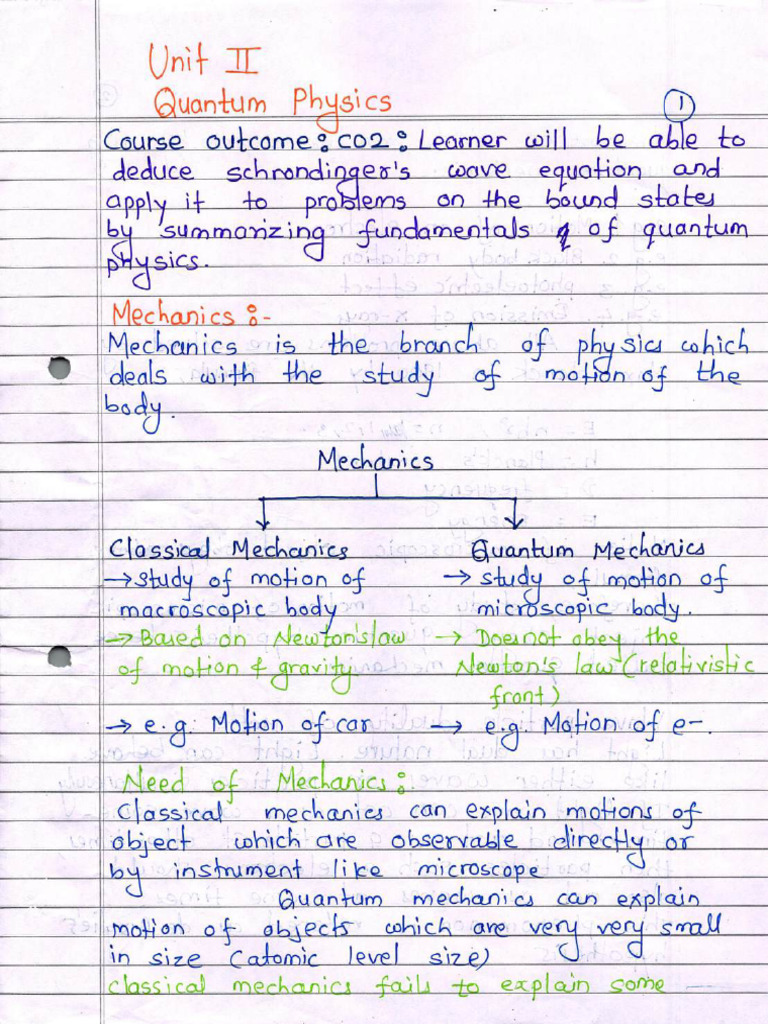 Unit II
Quantum Physics
1
Course outcome: CO2: Learner will be able to
deduce schrondinger's wave equation and
apply it to problems on the bound states
by summarizing fundamentals of quantum
physics.
Mechanics :-
Mechanics is the branch of physics which
deals with the study of motion of the
body.
Mechanics
Classical Mechanics Quantum Mechanics
→ study of motion of → study of motion of
macroscopic body microscopic body.
→ Based on Newton's law → Does not obey the
of motion & gravity Newton's law (relativistic
front)
→ e.g. Motion of car → e.g. Motion of e-.
Need of Mechanics:
Classical mechanics can explain motions of
object which are observable directly or
by instrument like microscope
Quantum mechanics can explain
motion of objects which are very very small
in size (atomic level size)
classical mechanics fails to explain some